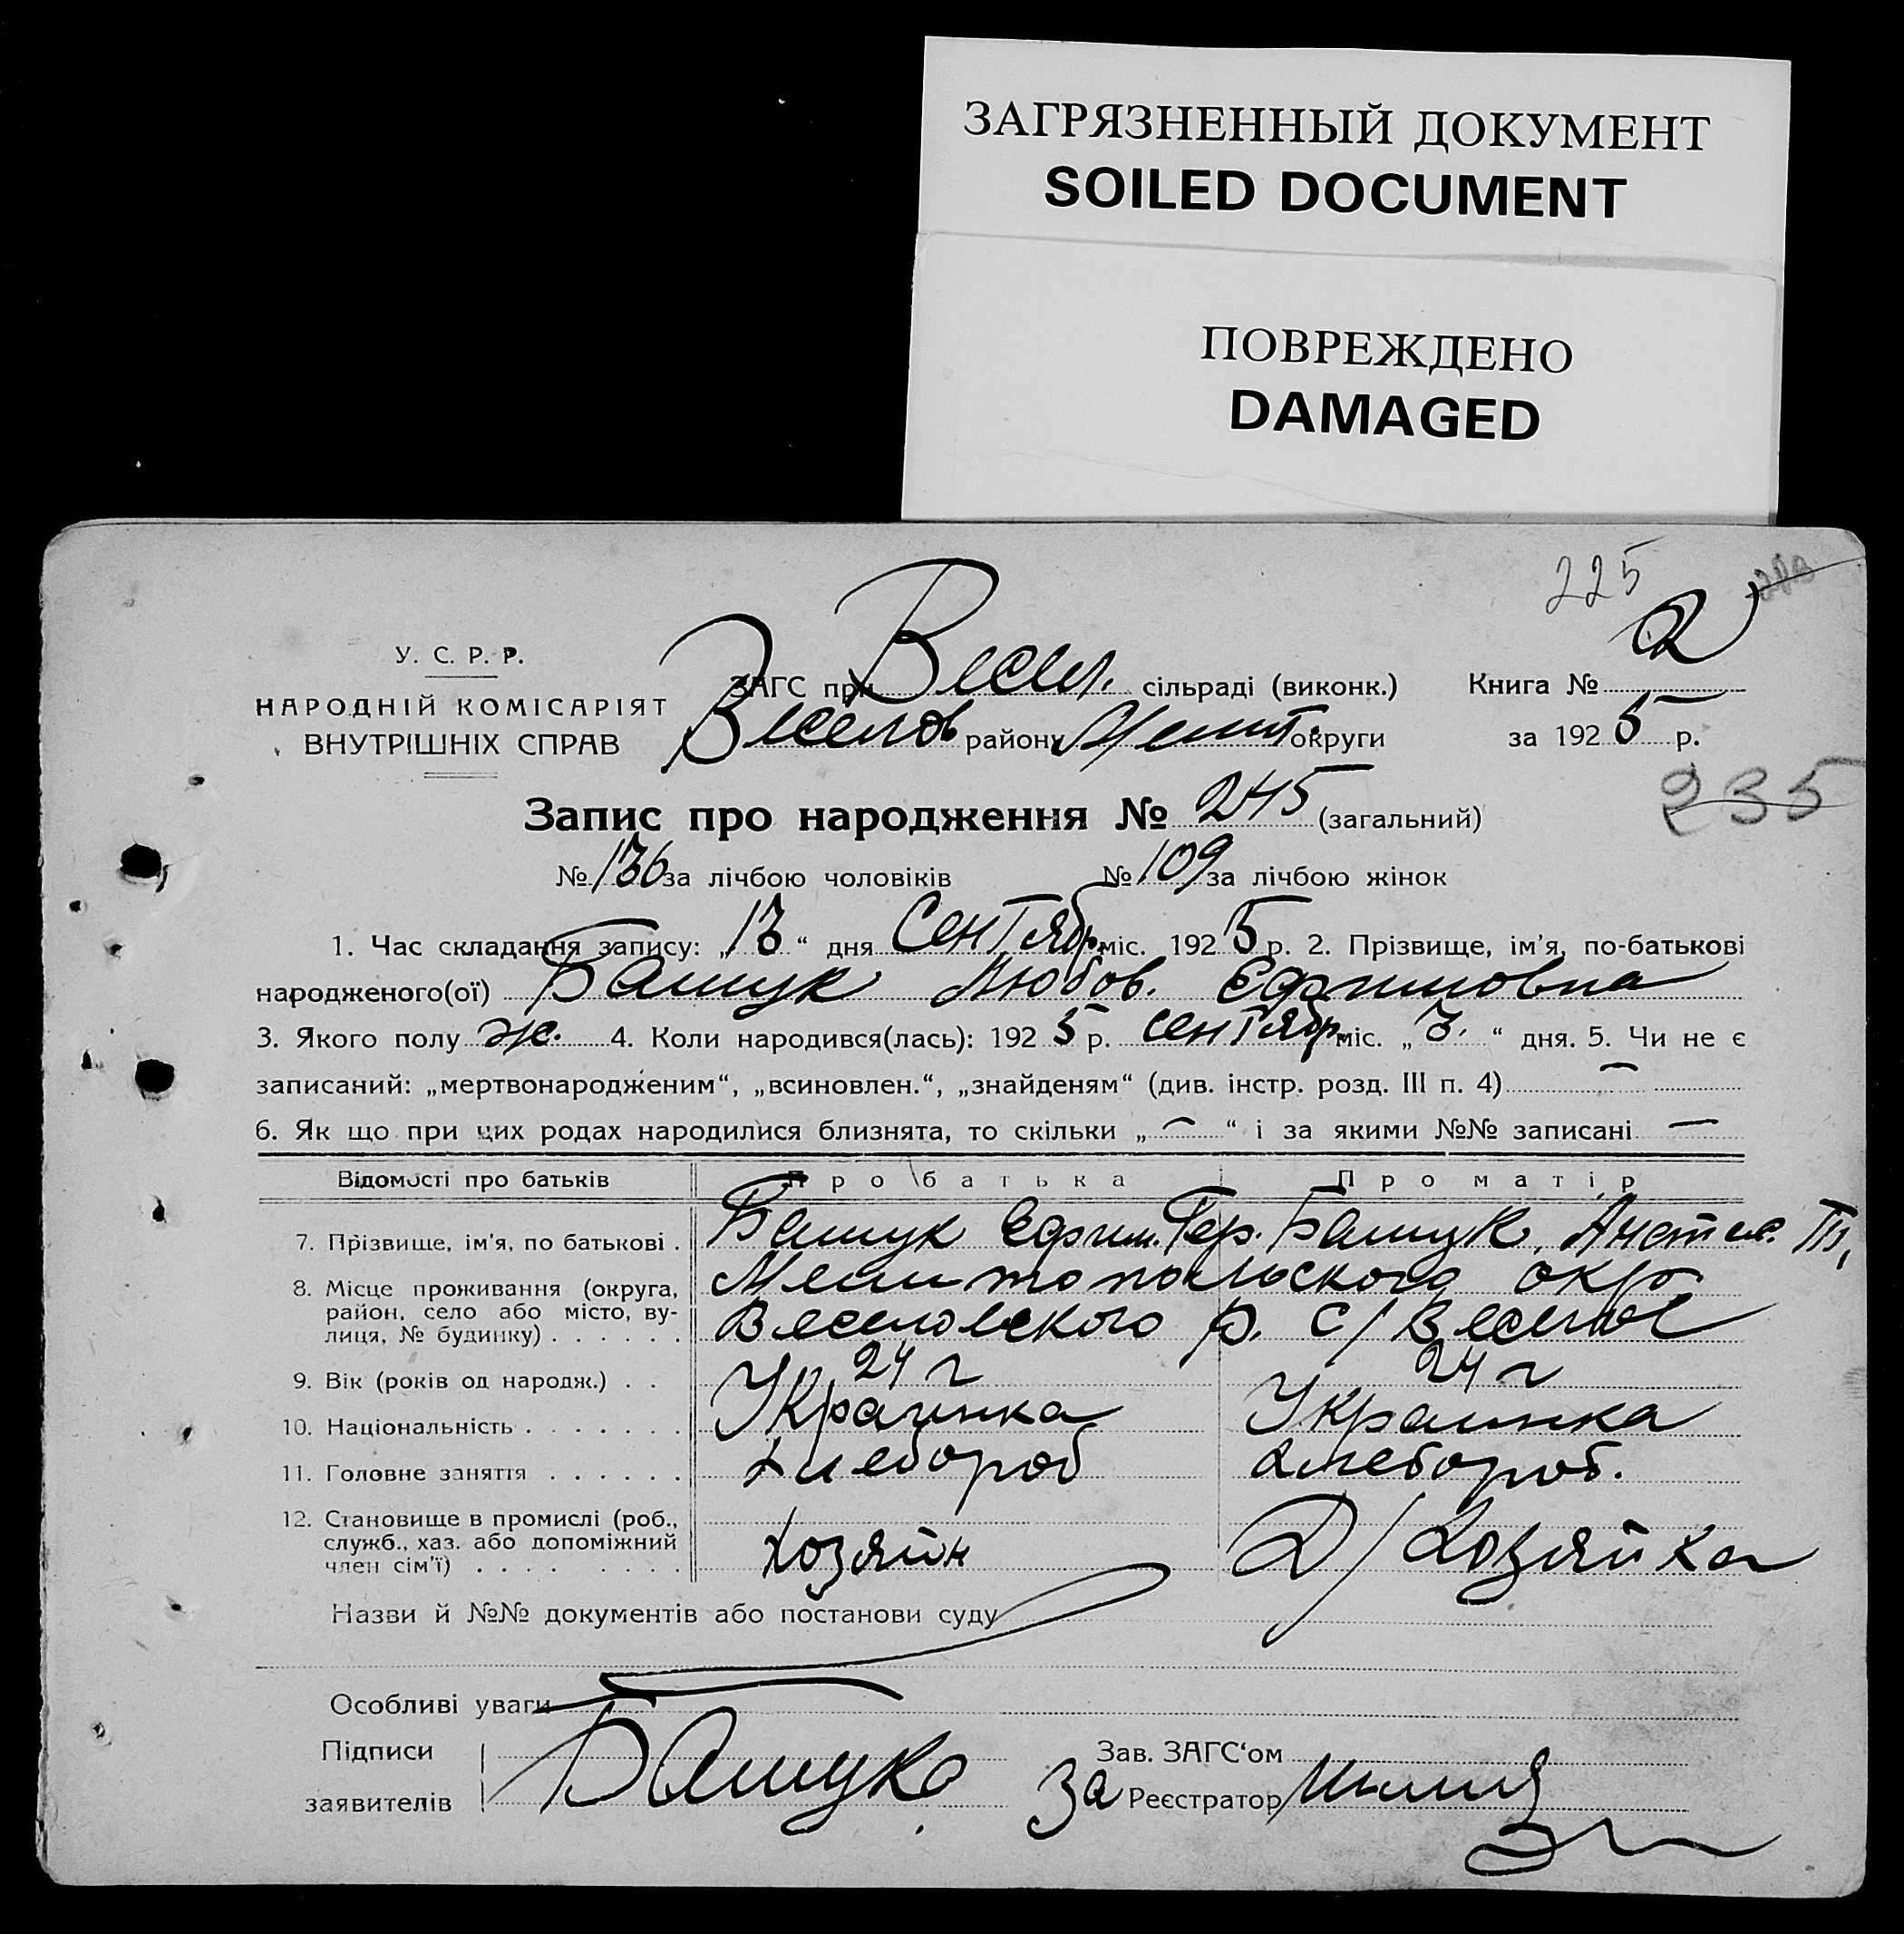 ЗАГРЯЗНЕННЫЙ ДОКУМЕНТ
SOILED DOCUMENT
ПОВРЕЖДЕНО
DAMAGED
225
У. С. Р. Р.
НАРОДНІЙ КОМІСАРІЯТ
ВНУТРІШНІХ СПРАВ
ЗАГС при Весел. сільраді (виконк.) Книга № 2
Веселов району Мелит. округи за 1925 р.
235
Запис про народження № 245 (загальний)
№ 136 за лічбою чоловіків № 109 за лічбою жінок
1. Час складання запису: „13“ дня Сентябр. міс. 1925 р. 2. Прізвище, ім’я, по-батькові
народженого(ої) Башук Любов. Ефимовна
3. Якого полу ж. 4. Коли народився(лась): 1925 р. сентябр. міс. „3.“ дня. 5. Чи не є
записаний: „мертвонародженим“, „всиновлен.“, „знайденям“ (див. інстр. розд. III п. 4) —
6. Як що при цих родах народилися близнята, то скільки „—“ і за якими №№ записані —
Відомості про батьків Про батька Про матір
7. Прізвище, ім’я, по батькові . Башук Ефим. Гер. Башук, Анатас.
8. Місце проживання (округа, Мелитопольского окр
район, село або місто, ву-
лиця, № будинку) . . . . . . Веселовского р. с/Веселое
9. Вік (років од народж.) . . 24 г 24 г
10. Національність . . . . . . . Украинка Украинка
11. Головне заняття . . . . . . Хлебороб хлебороб.
12. Становище в промислі (роб.,
служб., хаз. або допоміжний
член сім’ї) . . . . . . . . . хозяйн Д/хозяйка
Назви й №№ документів або постанови суду
Особливі уваги
Підписи Зав. ЗАГС‘ом
заявителів Башука За Реєстратор